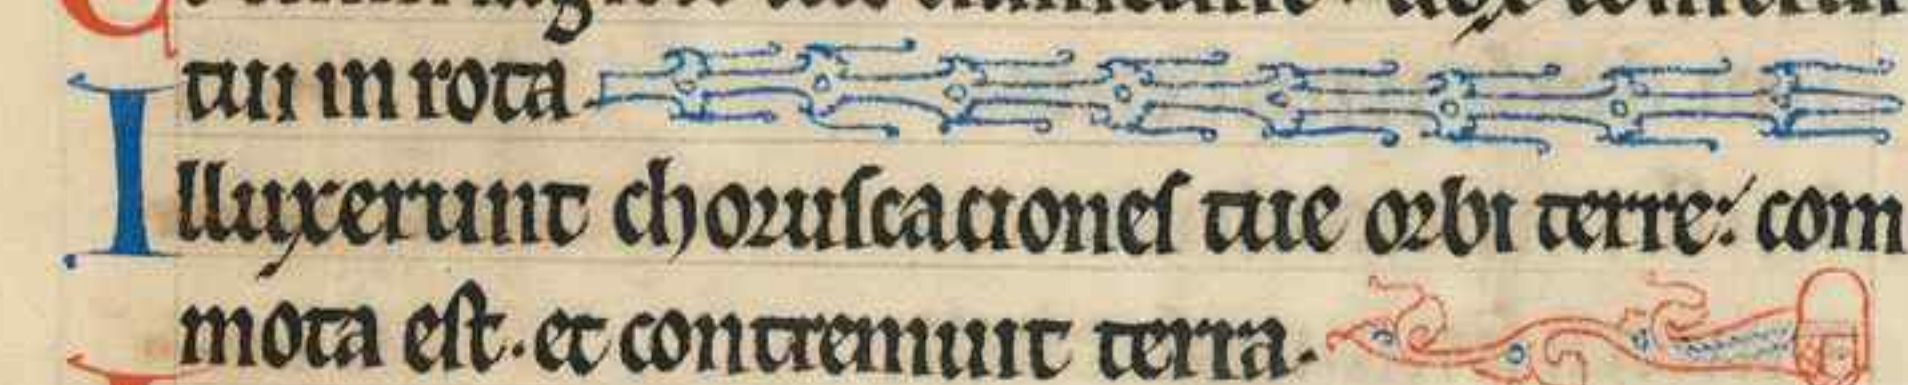 tui in rota
Illuxerunt choruscaciones tue orbi terre: com
mota est. et contremuit terra.